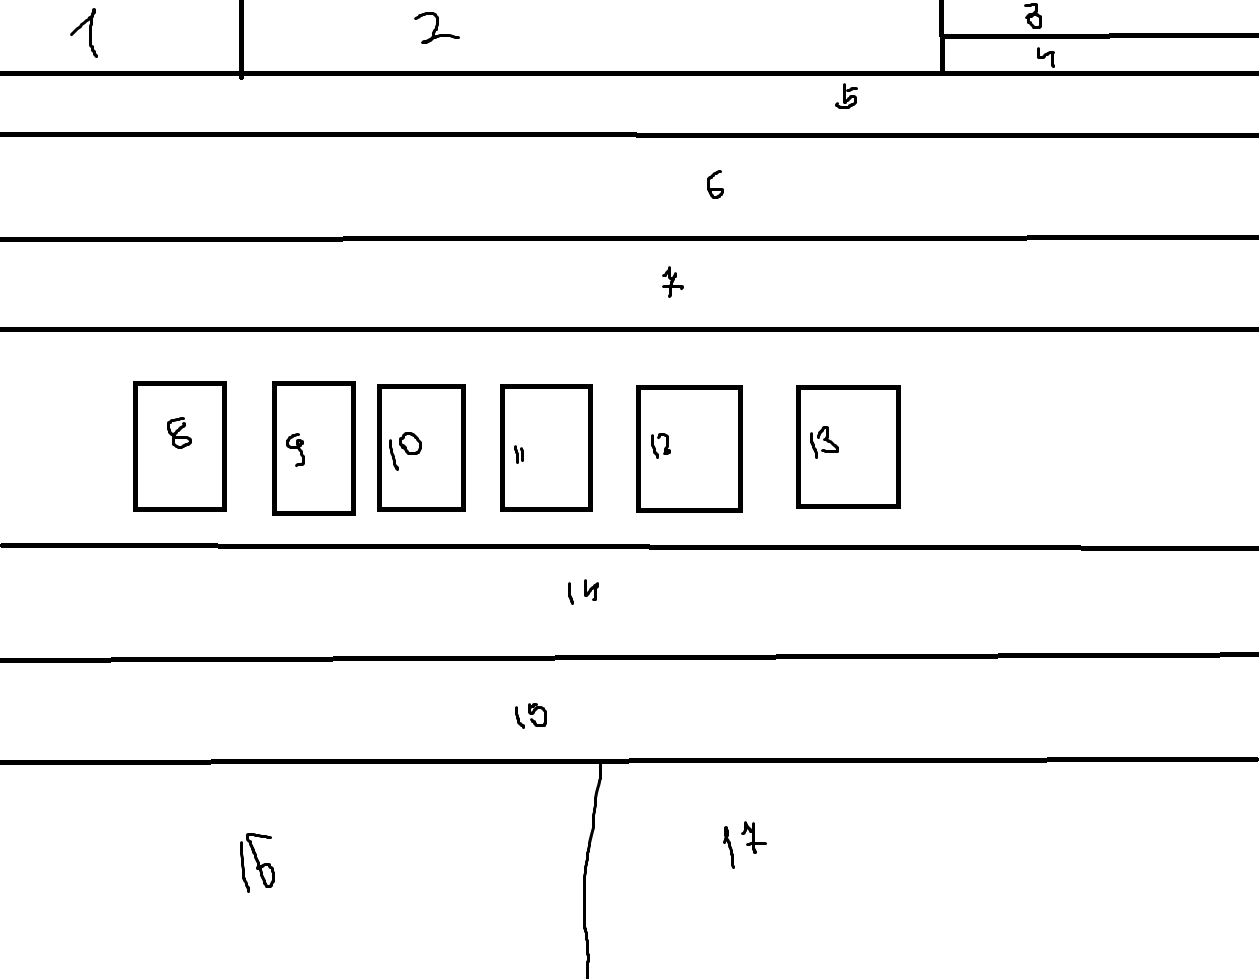 1 2 3
4
5
6
7
8 9 10 11 12 13
14
15
16 17